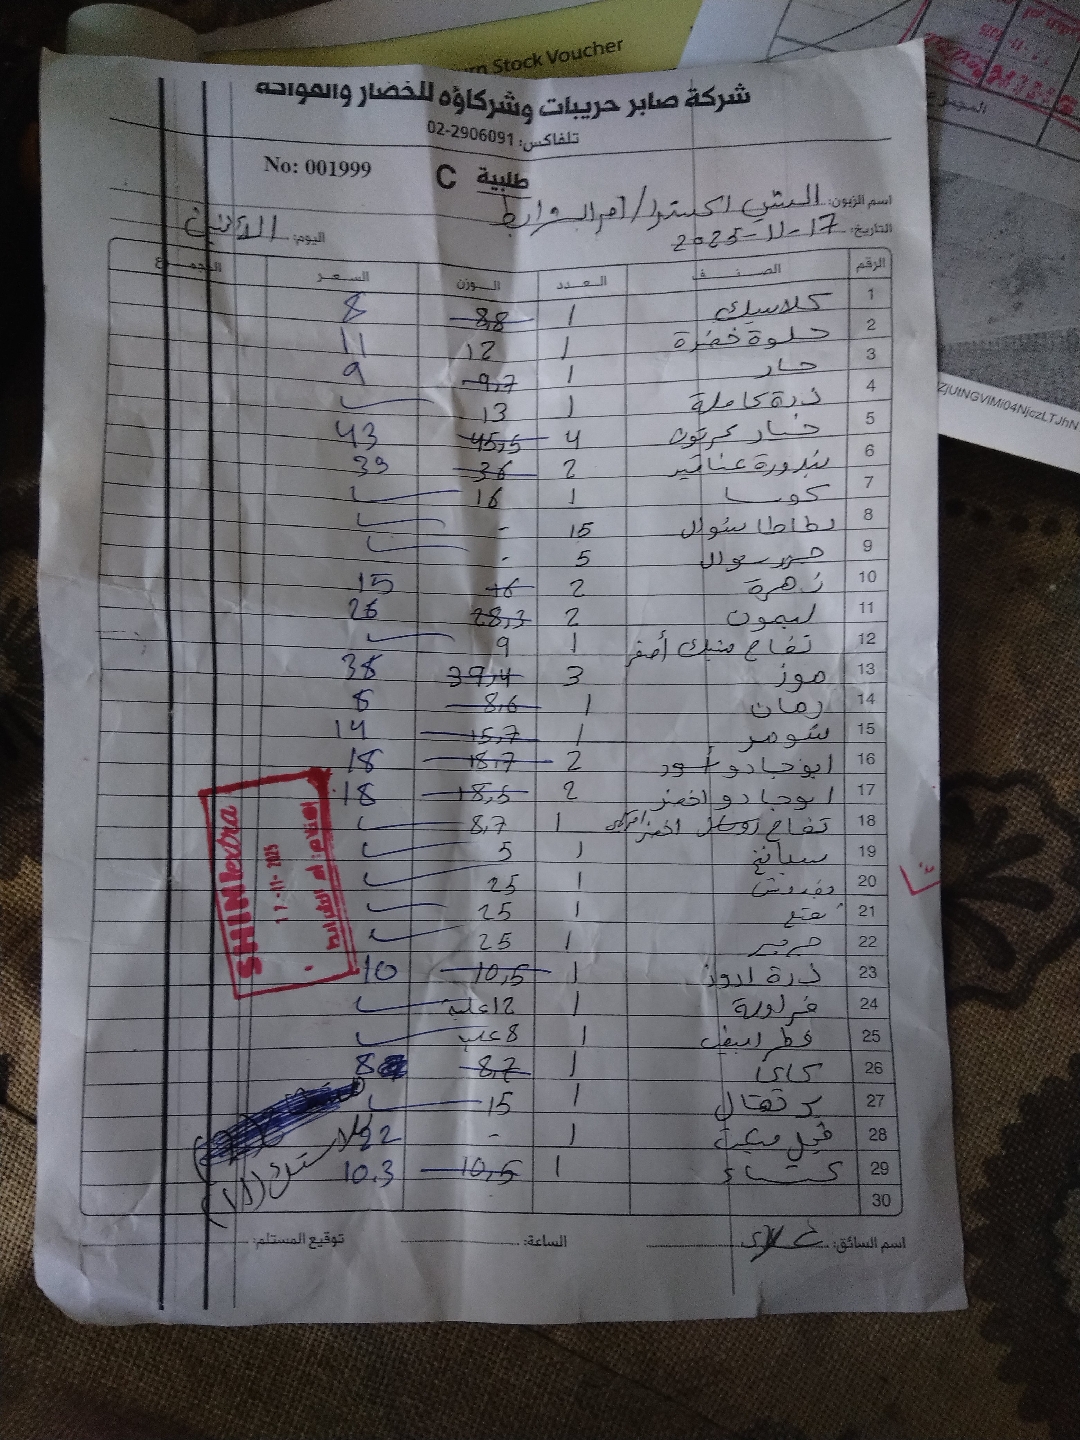 rn Stock Voucher
شركة صابر حريبات وشركاؤه للخضار والفواكه
تلفاكس: 02-2906091
No: 001999
طلبية C
اسم الزبون: الشني اكسترا/ام الشرايط
التاريخ: 17-11-2025
اليوم: الاثنين
الرقم الصنف العدد الوزن السعر المجموع
1 كلاسيك 1 8,8 8
2 حلوة خضرة 1 12 11
3 حار 1 9,7 9
4 ذرة كاملة 1 13
5 خيار كرتون 4 45,5 43
6 بندورة عناقيد 2 36 39
7 كوسا 1 16
8 بطاطا شوال 15 -
9 جزر شوال 5 -
10 زهرة 2 16 15
11 ليمون 2 28,3 26
12 تفاح أصفر 1 9
13 موز 3 39,4 38
14 رمان 1 8,6 8
15 شومر 1 15,7 14
16 ابوجادو أسود 2 18,7 18
17 ابوجادو اخضر 2 18,5 18
18 تفاح اخضر 1 8,7
19 سبانخ 1 5
20 بقدونس 1 25
21 نعنع 1 25
22 جرجير 1 25
23 ذرة 1 10,5 10
24 فراولة 1 12علبة
25 فطر ابيض 1 8علب
26 كاكا 1 8,7 8
27 برتقال 1 15
28 1 - 22
29 1 10,5 10.3
30
SHINI extra
17-11-2025
اسم السائق:
الساعة:
توقيع المستلم:
ZjUtNGVlMi04NjczLTJhN